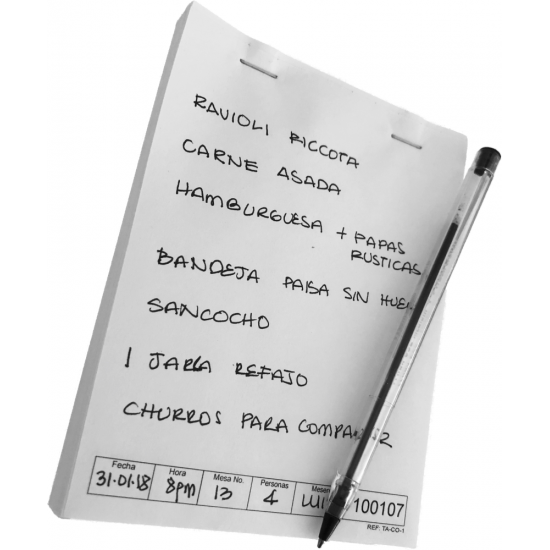 RAVIOLI RICCOTA
CARNE ASADA
HAMBURGUESA + PAPAS
RUSTICAS
BANDEJA PAISA SIN
SANCOCHO
1 JARRA REFAJO
CHURROS PARA COMPARTIR
Fecha Hora Mesa No. Personas
31.01.18 8pm 13 4 100107
REF: TA-CO-1